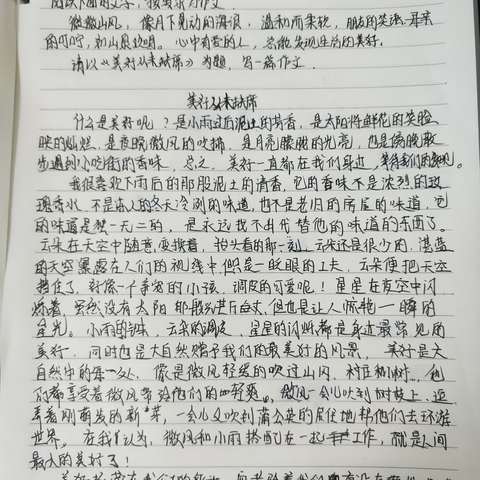 阅读下面的文字，按要求写作文。
微微山风，像月下晃动的海浪，温和而柔软，朋友的笑语，耳亲
的叮咛，如山泉边唱。心中有爱的人，总能发现生活的美好。
请以《美好从未缺席》为题，写一篇作文．
美好从未缺席
什么是美好呢？是小雨过后泥土的芳香，是太阳将鲜花的笑脸
映的灿烂，是夜晚微风的吹拂，是月亮朦胧的光亮，也是傍晚散
步遇到小吃街的香味，总之，美好一直都在我们身边，等待我们的发现。
我很喜欢下雨后的那股泥土的清香，它的香味不是浓烈的玫
瑰香水，不是冻人的冬天冷冽的味道，也不是老旧的房屋的味道，它
的味道是独一无二的，是永远找不出代替他的味道的东西了。
云朵在天空中随意变换着，抬头看的那一刻，云朵还是很少的，湛蓝
的天空暴露在人们的视线中但是一眨眼的工夫，云朵便把天空
挡住了，好像一个害羞的小孩，调皮的可爱呢！星星在夜空中闪
烁着，虽然没有太阳那般光芒万丈，但也是让人惊艳一瞬的
星光。小雨的味，云朵的调皮，星星的闪烁都是身边最常见的
美好，同时也是大自然赠予我们的最美好的风景，美好是大
自然中的每一处，像是微风轻缓的吹过山闪、村庄和树，他
们都享受着微风带给他们的轻爽，微风一会儿吹到树枝上，逗
弄着刚萌发的新芽，一会儿又吹到蒲公英的居住地帮他们去环游
世界。在我以为，微风和小雨搭配在一起工作，就是人间
最大的美好了！